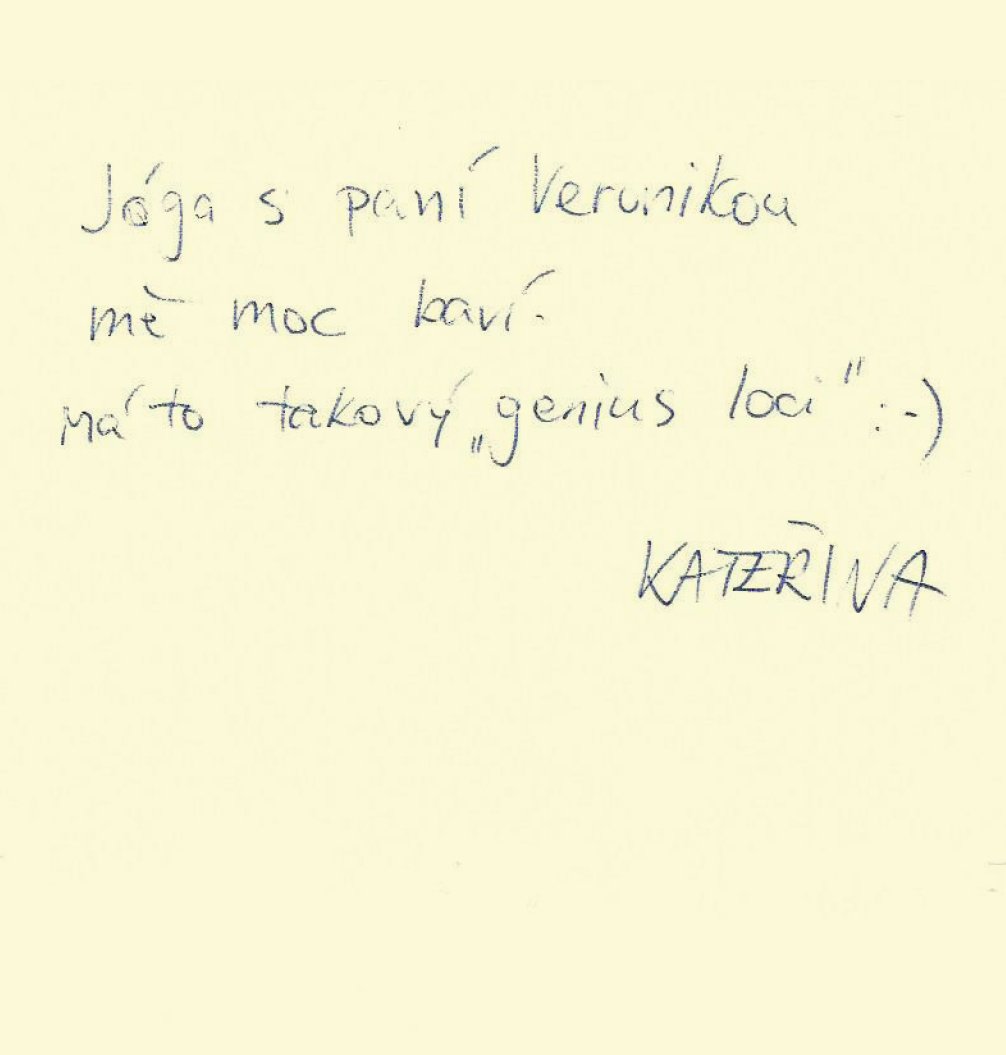 Jóga s paní Verunikou
mě moc baví.
Má to takový „genius loci" :-)
KATEŘINA